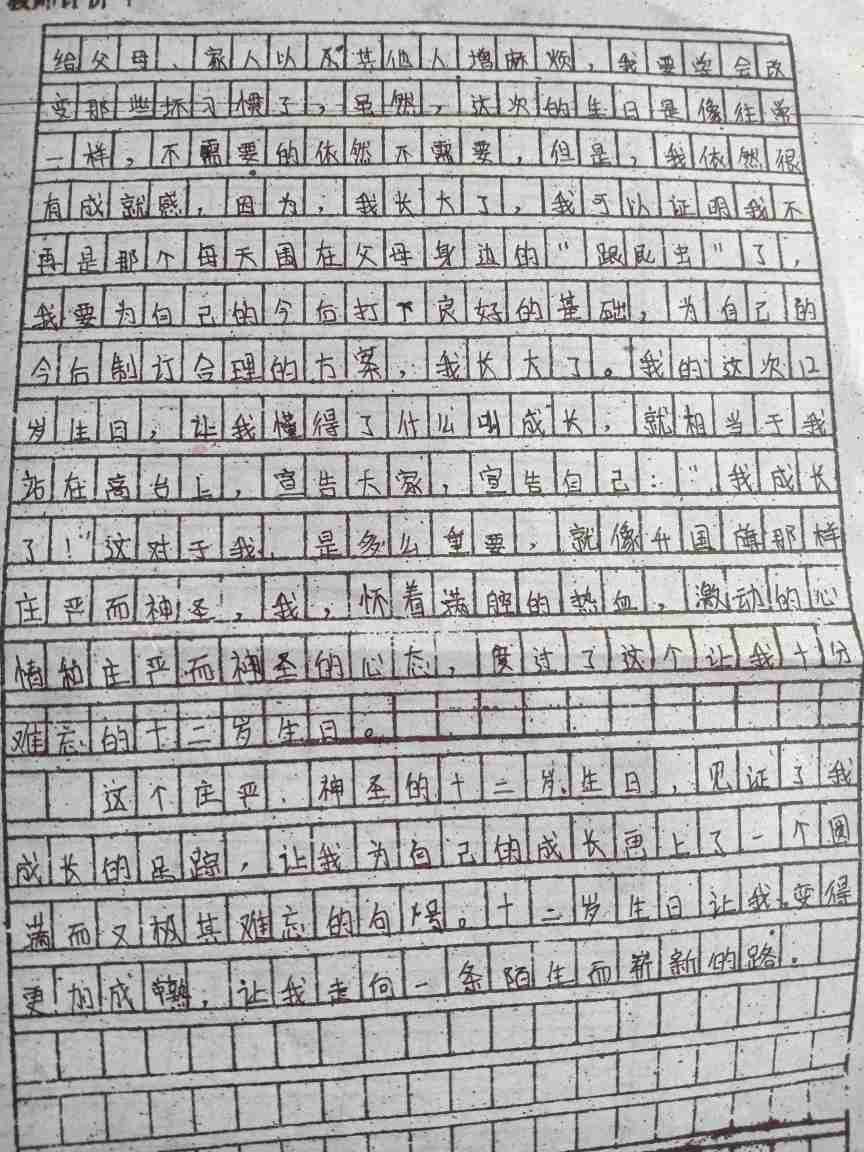 给父母、家人以及其他人增麻烦，我要学会改
变那些坏习惯了，虽然，这次的生日是像往常
一样，不需要的依然不需要，但是，我依然很
有成就感，因为，我长大了，我可以证明我不
再是那个每天围在父母身边的“跟屁虫”了，
我要为自己的今后打下良好的基础，为自己的
今后制订合理的方案，我长大了。我的这次12
岁生日，让我懂得了什么叫成长，就相当于我
站在高台上，宣告大家，宣告自己：“我成长
了！”这对于我，是多么重要，就像升国旗那样
庄严而神圣，我，怀着满腔的热血，激动的心
情和庄严而神圣的心态，度过了这个让我十分
难忘的十二岁生日。
这个庄严、神圣的十二岁生日，见证了我
成长的足踪，让我为自己的成长画上了一个圆
满而又极其难忘的句号。十二岁生日让我变得
更加成熟，让我走向一条陌生而崭新的路。